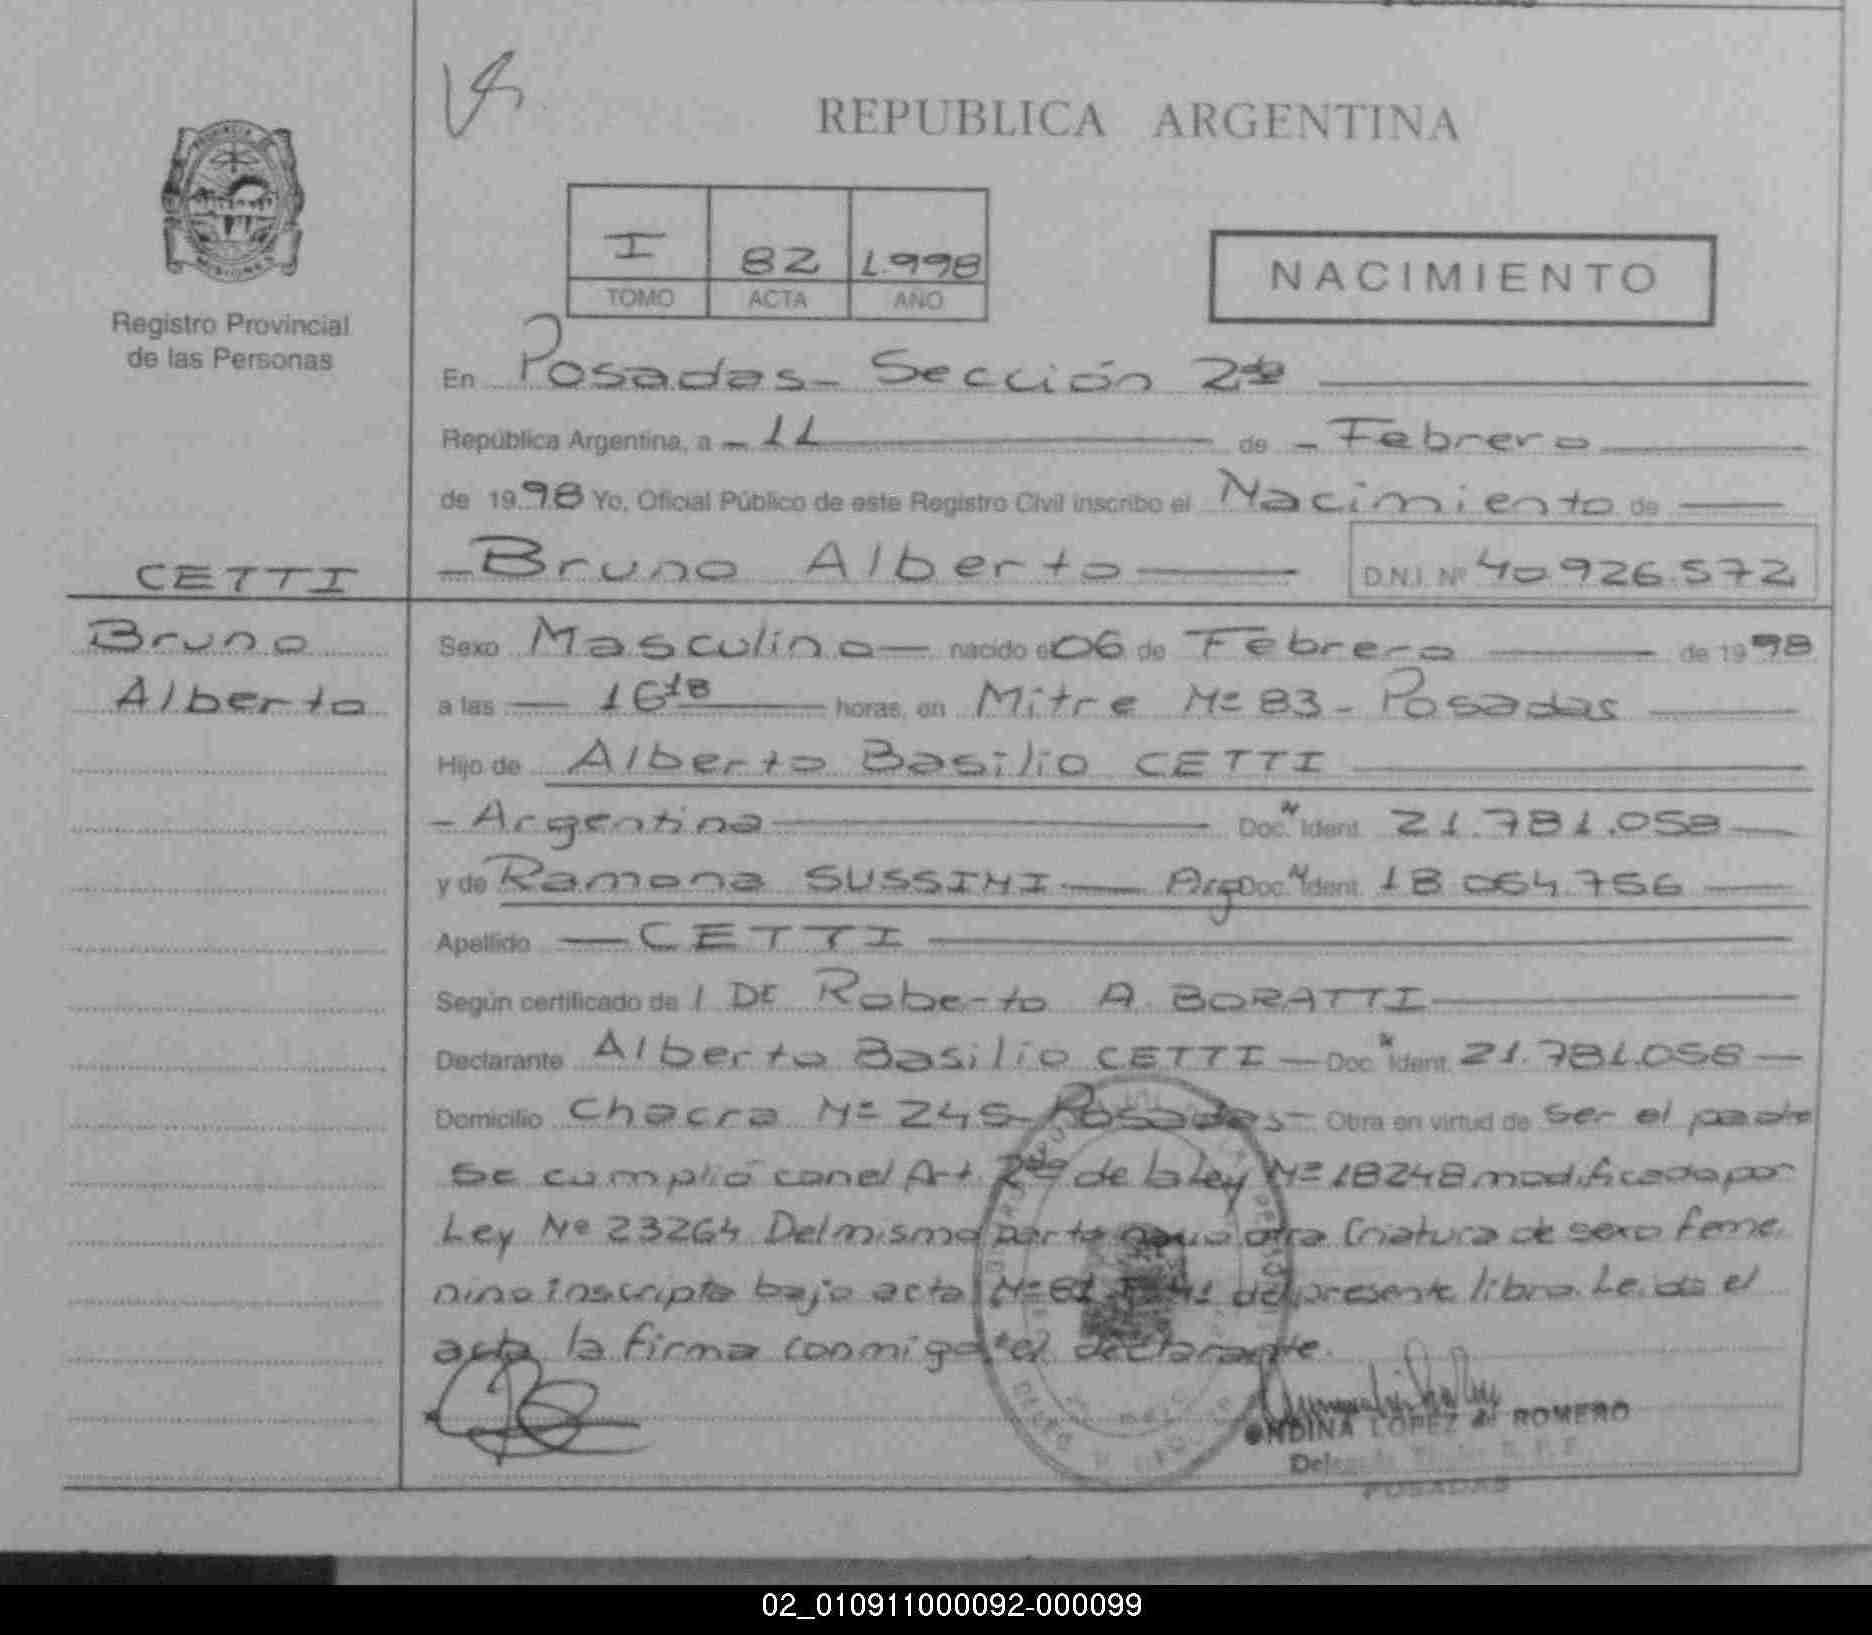 REPUBLICA ARGENTINA
I 82 1.998
TOMO ACTA AÑO
NACIMIENTO
Registro Provincial
de las Personas
En Posadas - Sección 2da
República Argentina, a - 11 de - Febrero
de 1998 Yo, Oficial Público de este Registro Civil inscribo el Nacimiento de
CETTI
- Bruno Alberto D.N.I. Nº 40.926.572
Bruno
Alberto
Sexo Masculino nacido el 06 de Febrero de 1998
a las 16 18 horas, en Mitre Nº 83 - Posadas
Hijo de Alberto Basilio CETTI
- Argentina Doc. N Ident. 21.781.058
y de Ramona SUSSINI Arg Doc. N Ident. 18.064.756
Apellido CETTI
Según certificado de l Dr Roberto A. BORATTI
Declarante Alberto Basilio CETTI - Doc. N Ident. 21.781.058
Domicilio Chacra Nº 245 - Posadas - Obra en virtud de ser el padre
Se cumplió con el Art. 2do de la Ley Nº 18248 modificada por
Ley Nº 23264 Del mismo parto nacio otra Criatura de sexo feme
nino inscripta bajo acta Nº 81 del presente libro. Leida el
acta la firma conmigo el declarante.
ONDINA LOPEZ de ROMERO
POSADAS
02_010911000092-000099